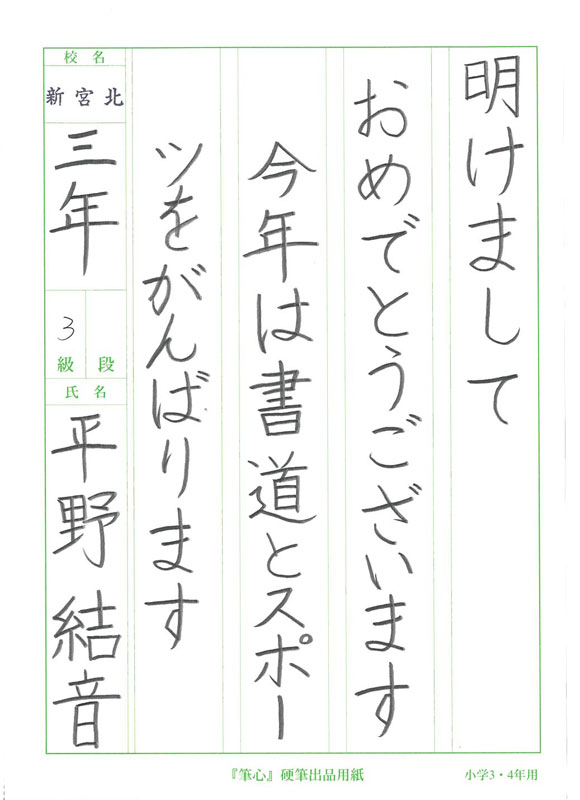 明けまして
おめでとうございます
今年は書道とスポー
ツをがんばります
校名
新宮北
三年
3
級
段
氏名
平野結音
『筆心』硬筆出品用紙
小学3・4年用